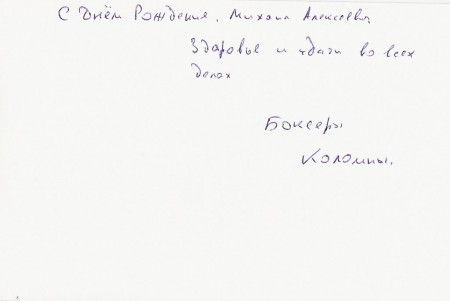 С Днём Рождения, Михаил Алексеевич
Здоровье и удачи во всех
делах
Боксеры
Коломны.